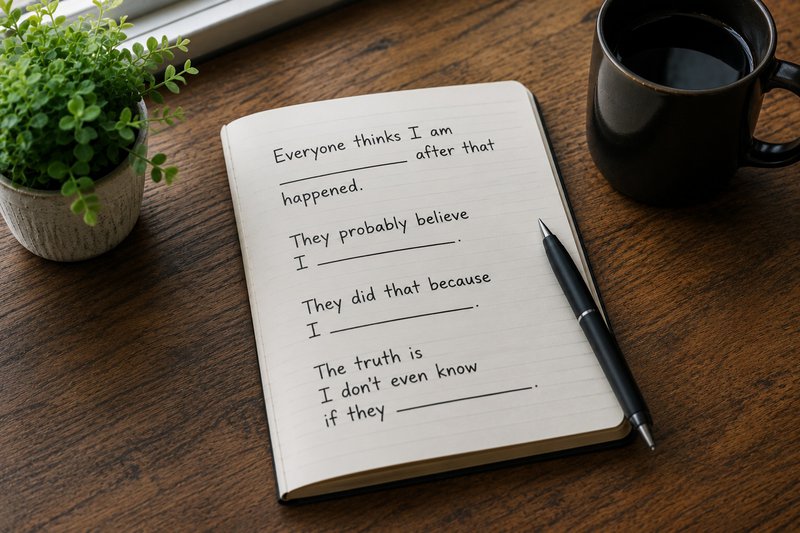 Everyone thinks I am
__________ after that
happened.
They probably believe
I __________.
They did that because
I __________.
The truth is
I don't even know
if they __________.